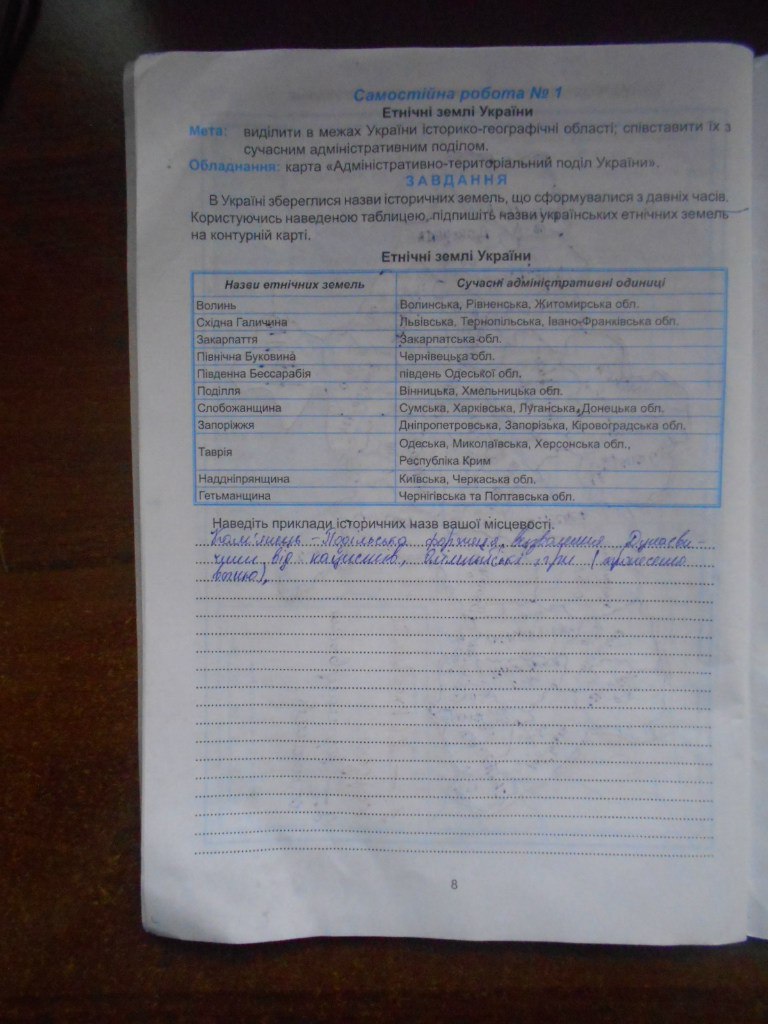 Самостійна робота № 1
Етнічні землі України
Мета: виділити в межах України історико-географічні області; співставити їх з
сучасним адміністративним поділом.
Обладнання: карта «Адміністративно-територіальний поділ України».
ЗАВДАННЯ
В Україні збереглися назви історичних земель, що сформувалися з давніх часів.
Користуючись наведеною таблицею, підпишіть назви українських етнічних земель
на контурній карті.
Етнічні землі України
Назви етнічних земель Сучасні адміністративні одиниці
Волинь Волинська, Рівненська, Житомирська обл.
Східна Галичина Львівська, Тернопільська, Івано-Франківська обл.
Закарпаття Закарпатська обл.
Північна Буковина Чернівецька обл.
Південна Бессарабія південь Одеської обл.
Поділля Вінницька, Хмельницька обл.
Слобожанщина Сумська, Харківська, Луганська, Донецька обл.
Запоріжжя Дніпропетровська, Запорізька, Кіровоградська обл.
Таврія Одеська, Миколаївська, Херсонська обл.,
Республіка Крим
Наддніпрянщина Київська, Черкаська обл.
Гетьманщина Чернігівська та Полтавська обл.
Наведіть приклади історичних назв вашої місцевості.
Кам'янець-Подільська фортеця, визволення Дунаєв-
від нацистів, ігри (
8